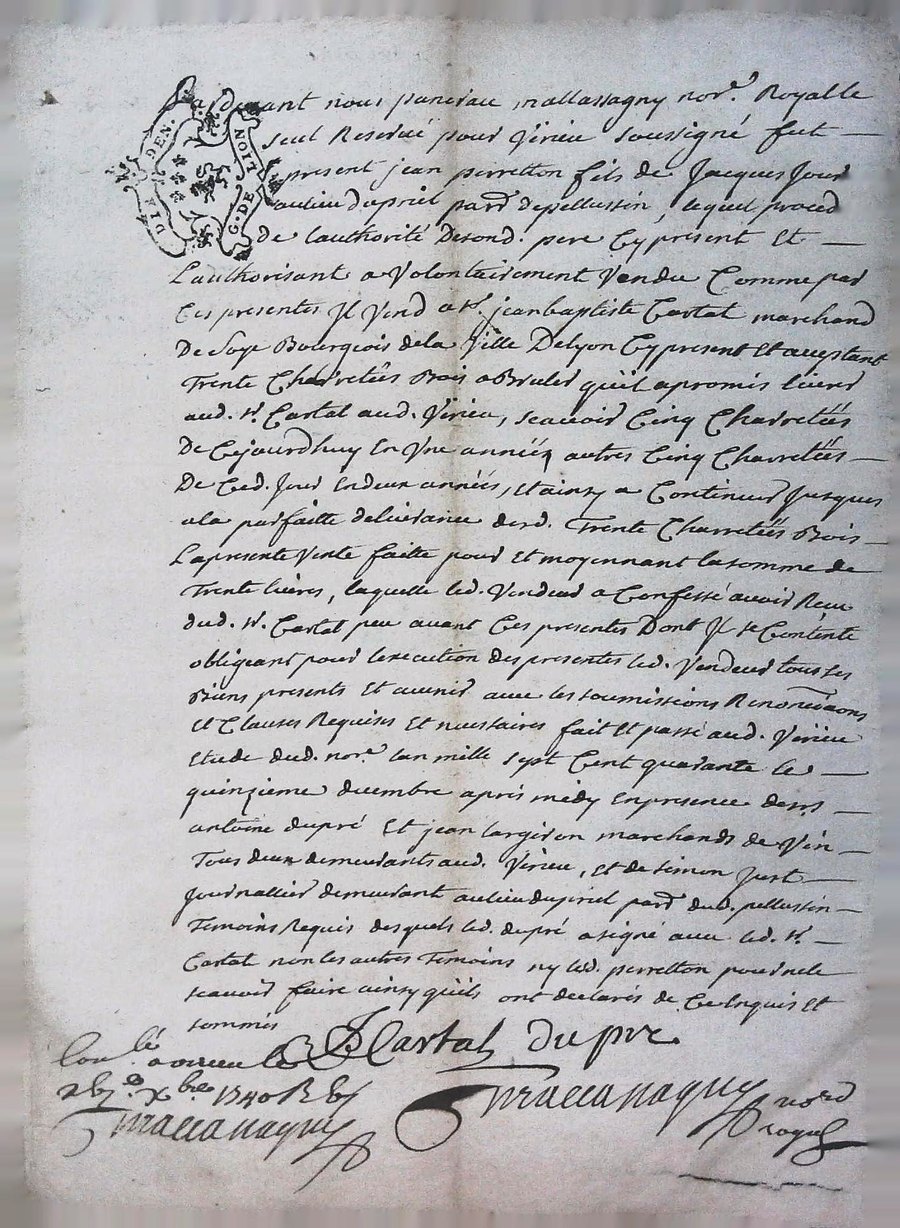 DIX DEN.
G. DE LION
Pardevant nous panerau mallassagny nore. Royalle
seul Reservé pour Virieu soussigné fut
present jean perretton fils de Jacques Jour
au lieu dupriel parr depellussin, lequel proced
de Lauthorité Desond. pere Cy present Et
Lauthorisant a Volontairement Vendu Comme par
Ces presentes Jl Vend a sr. jean baptiste Cartal marchand
De Soye Bourgeois dela Ville Delyon Cy present Et acceptant
Trente Charretées Bois a Bruler quil a promis livrer
aud. sr. Cartal aud. Virieu, scavoir Cinq Charretées
De Cejourdhuy En Vne année, autres Cinq Charretées
De Ced. Jour En deux années, Et ainsy a Continuer Jusques
ala parfaitte delivrance desd. Trente Charretées Bois
La presente Vente faitte pour Et moyennant la somme de
Trente livres, laquelle led. Vendeur a Confessé avoir Receu
dud. sr. Cartal peu avant Ces presentes Dont Jl se Contente
obligeant pour lexecution des presentes led. Vendeur tous ses
Biens presents Et avenir avec les soumissions Renon̄ciaōns
Et Clauses Requises Et necessaires fait Et passé aud. Virieu
Etude dud. nore. lan mille sept Cent quarante le
quinzieme decembre apres midy En presence de srs
antoine dupré Et jean largeron marchands de Vin
Tous deux demeurants aud. Virieu, Et de simon just
journallier demeurant au lieu dupriel parr dud. pellussin
Temoins Requis desquels led. dupré a signé avec led. sr.
Cartal non les autres Temoins ny led. perretton pour ne le
scavoir faire ainsy quils ont declarés de Ce Enquis Et
sommés
JB Cartal dupré
Conlé
a virieu le
xbre 1740
nore
royal